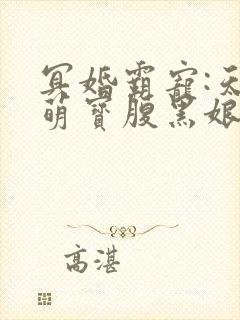 冥婚霸寵:天
萌寶腹黑娘
高湛